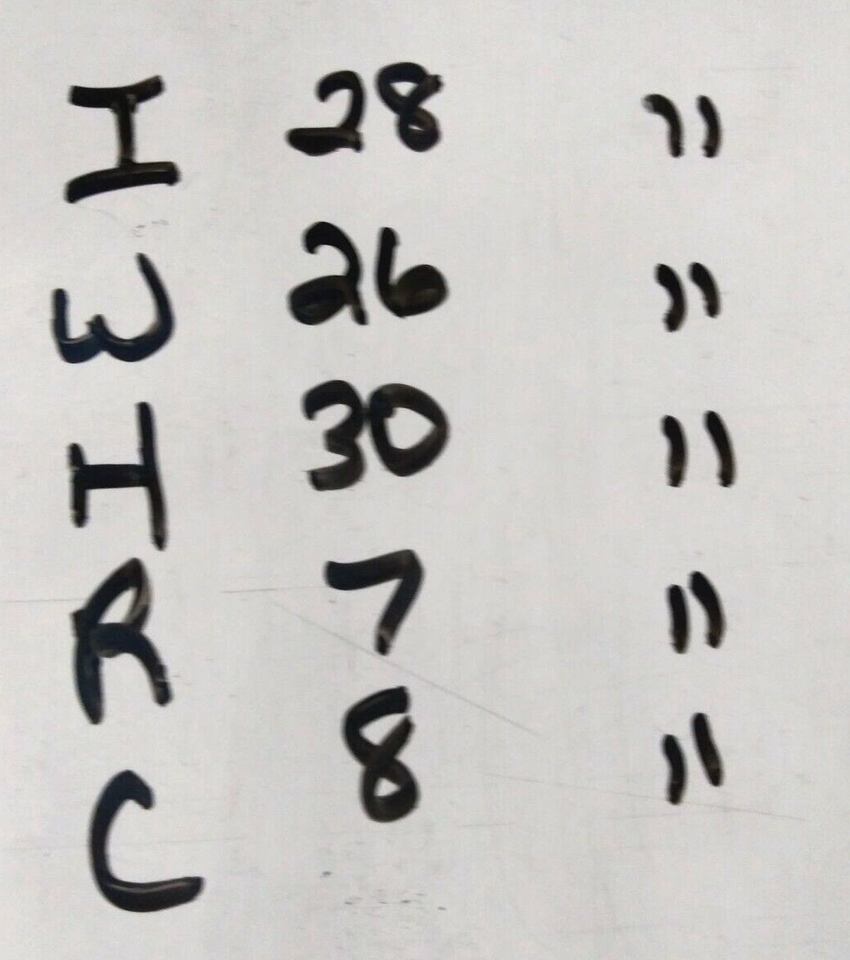 I 28 "
W 26 "
H 30 "
R 7 "
C 8 "